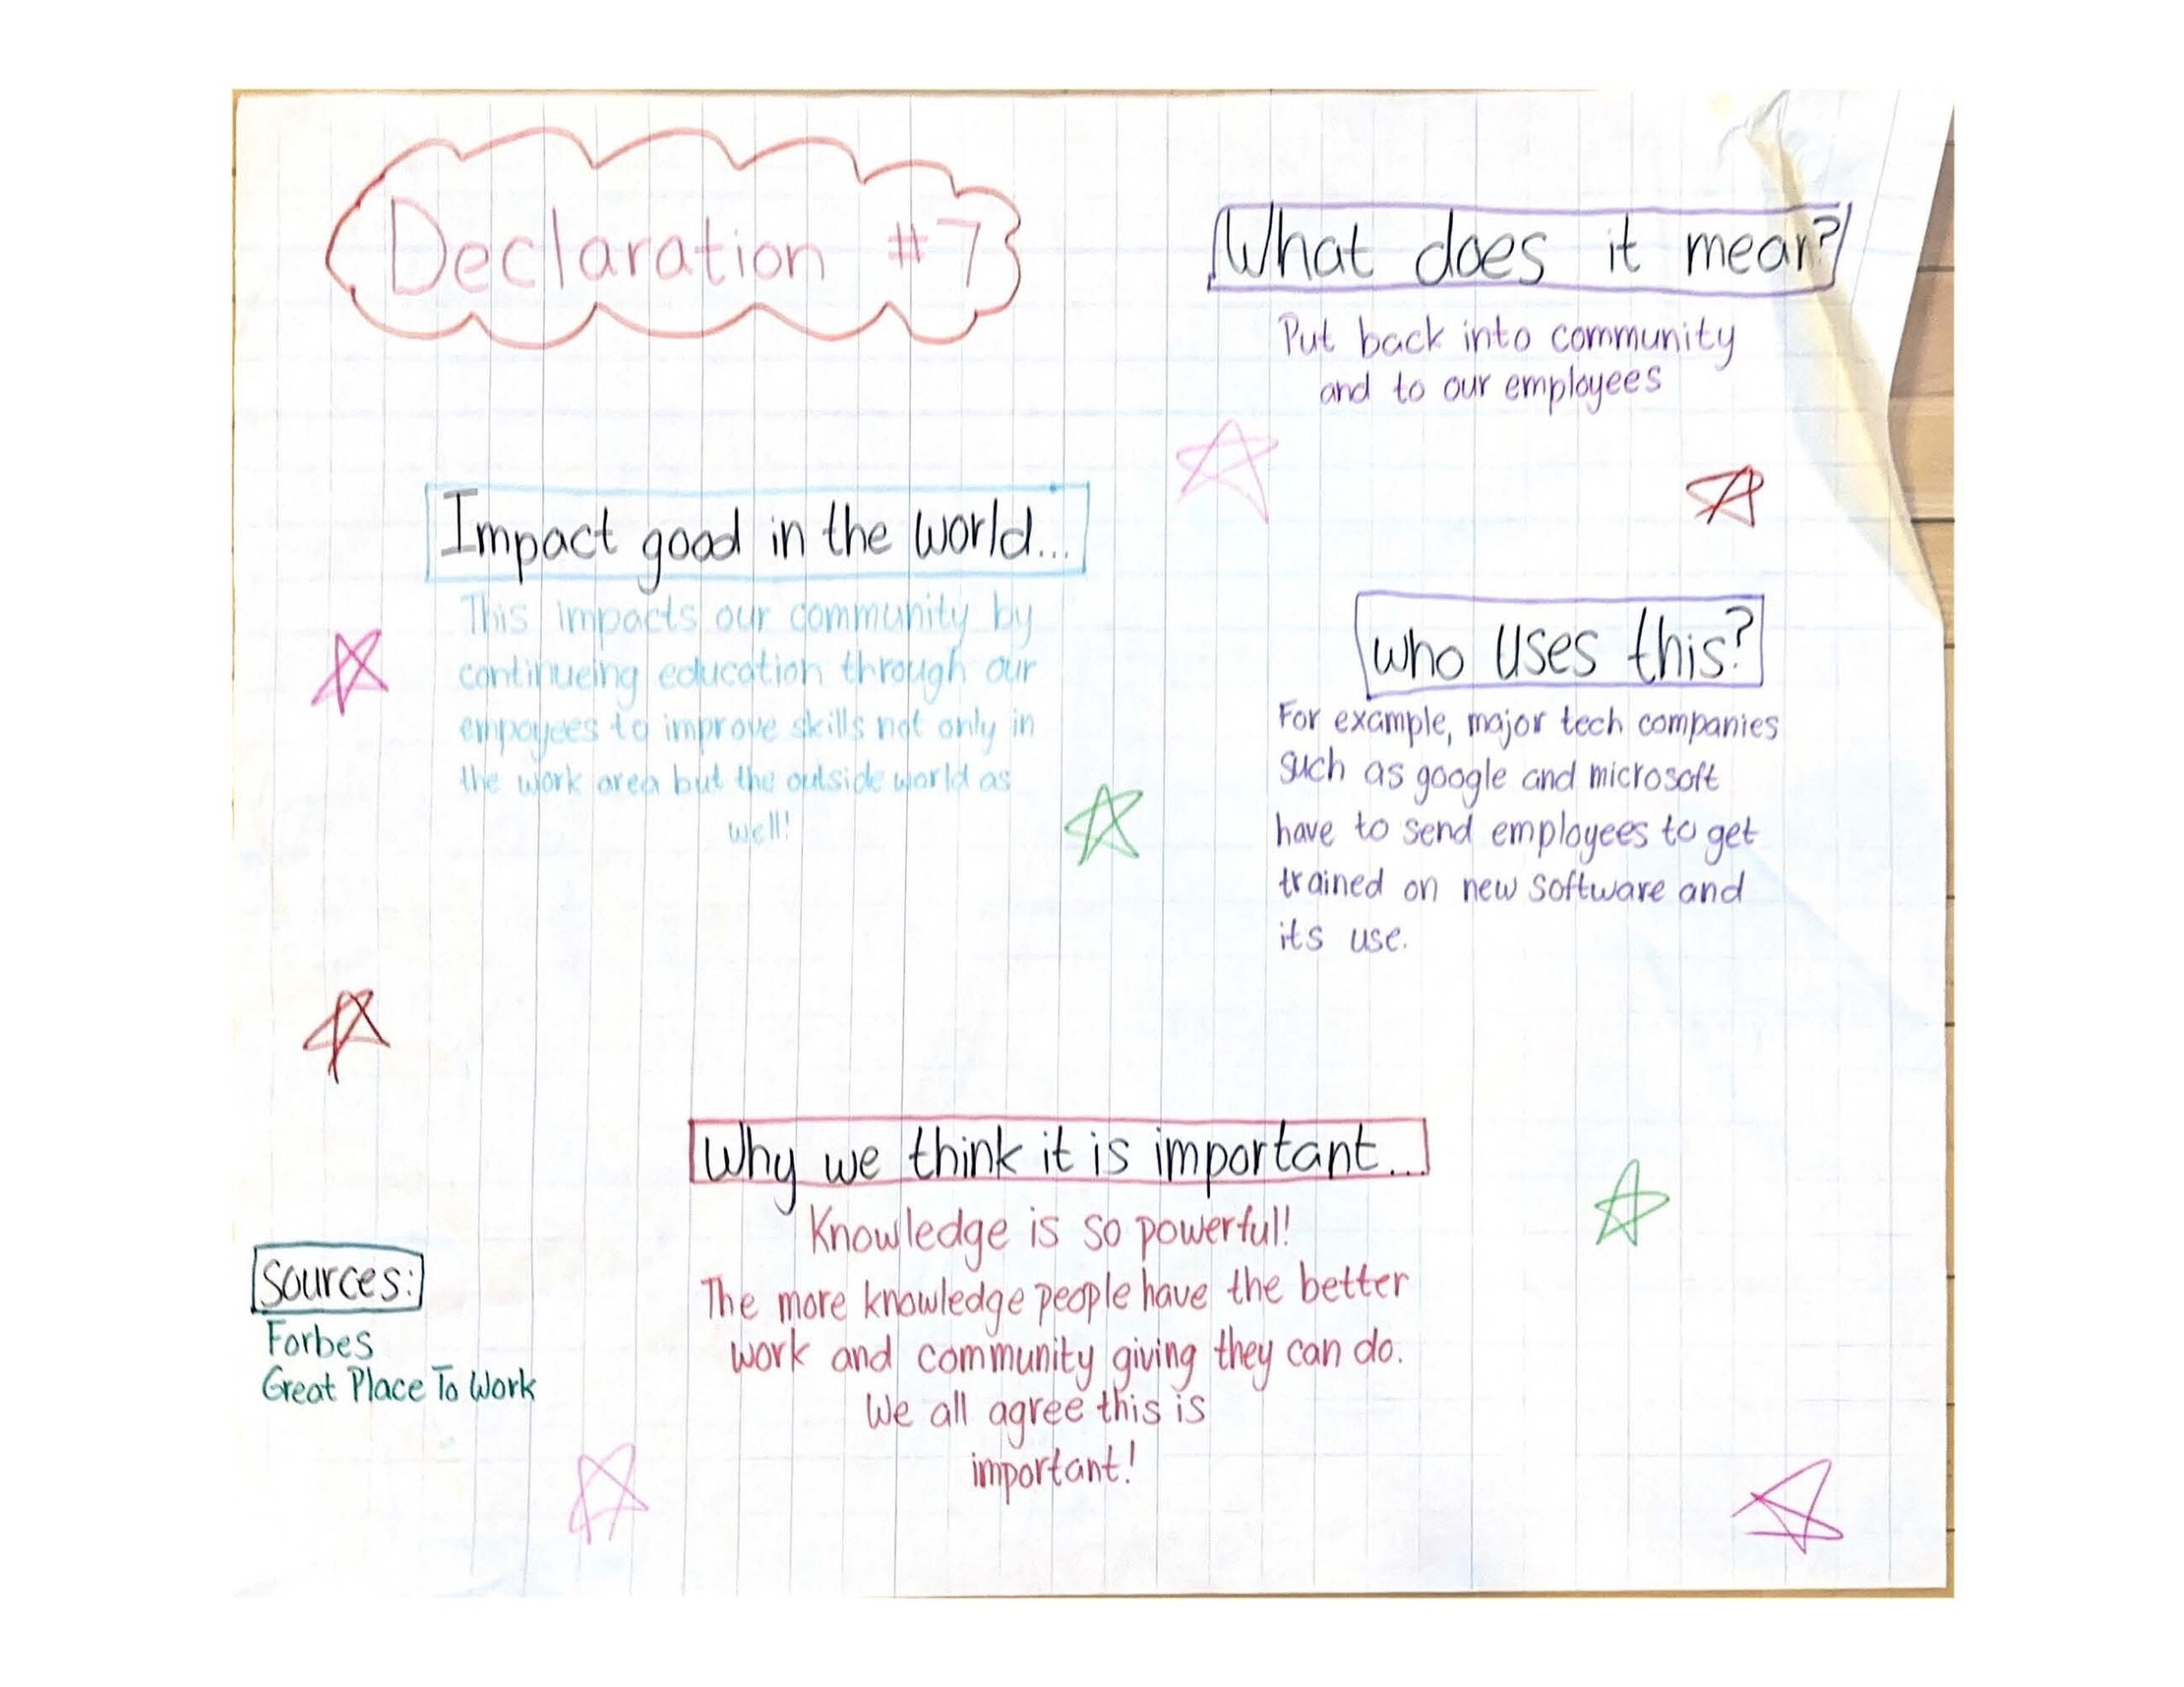 Declaration #7
What does it mean?
Put back into community
and to our employees
Impact good in the world...
This impacts our community by
continueing education through our
empoyees to improve skills not only in
the work area but the outside world as
well!
who uses this?
For example, major tech companies
such as google and microsoft
have to send employees to get
trained on new software and
its use.
Why we think it is important...
Knowledge is so powerful!
The more knowledge people have the better
work and community giving they can do.
We all agree this is
important!
Sources:
Forbes
Great Place To Work